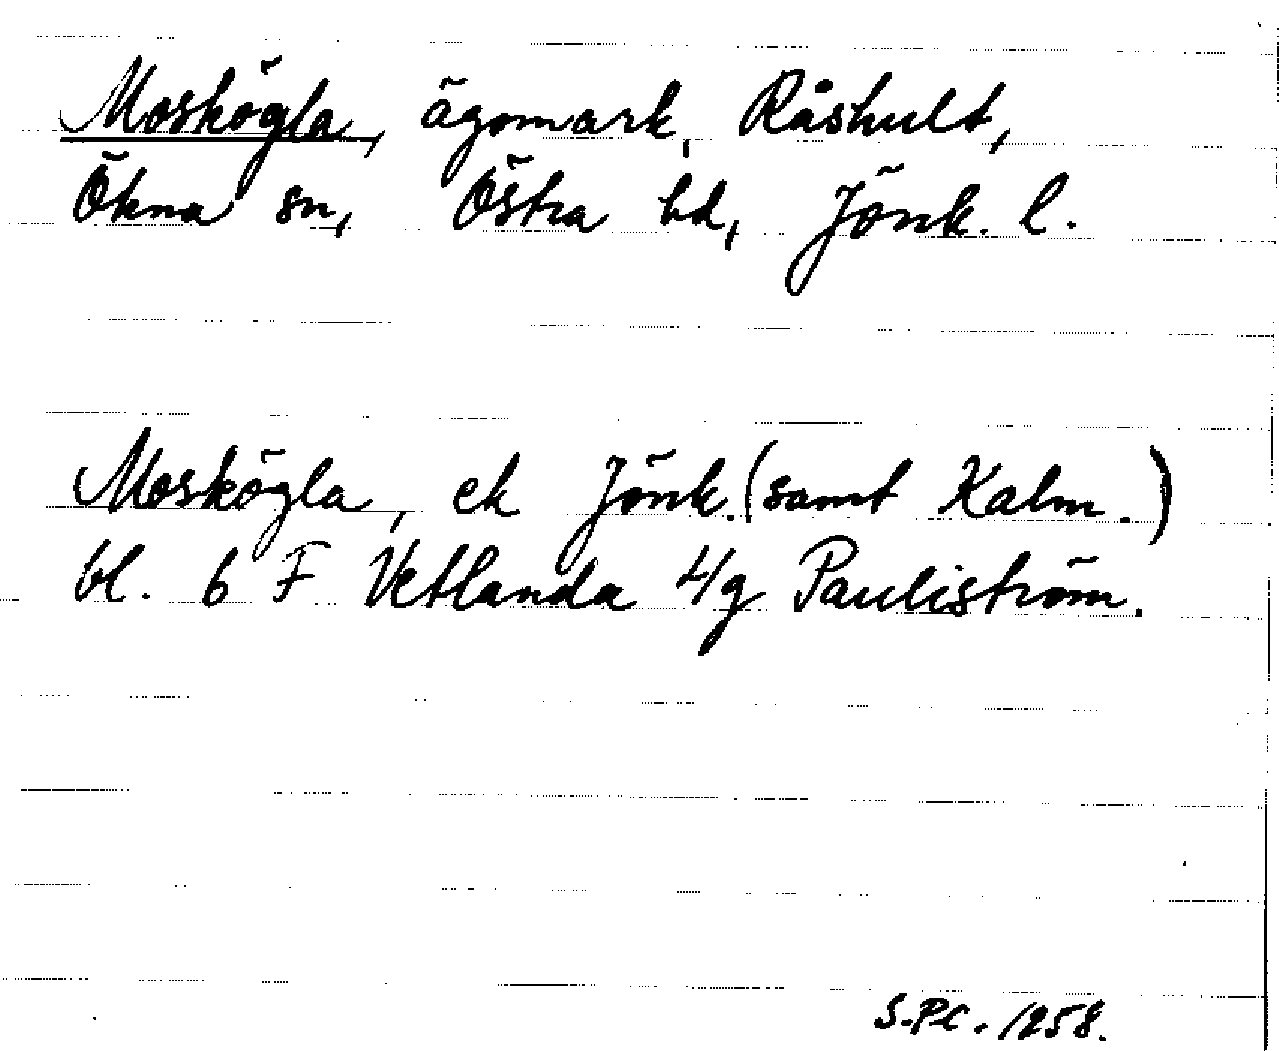 Moskögla, ägomark, Råshult,
Ökna sn, Östra hd, Jönk. l.
Moskögla, ek Jönk. (samt Kalm.)
bl. 6 F Vetlanda 4/g Pauliström.
S.P.C. 1958.